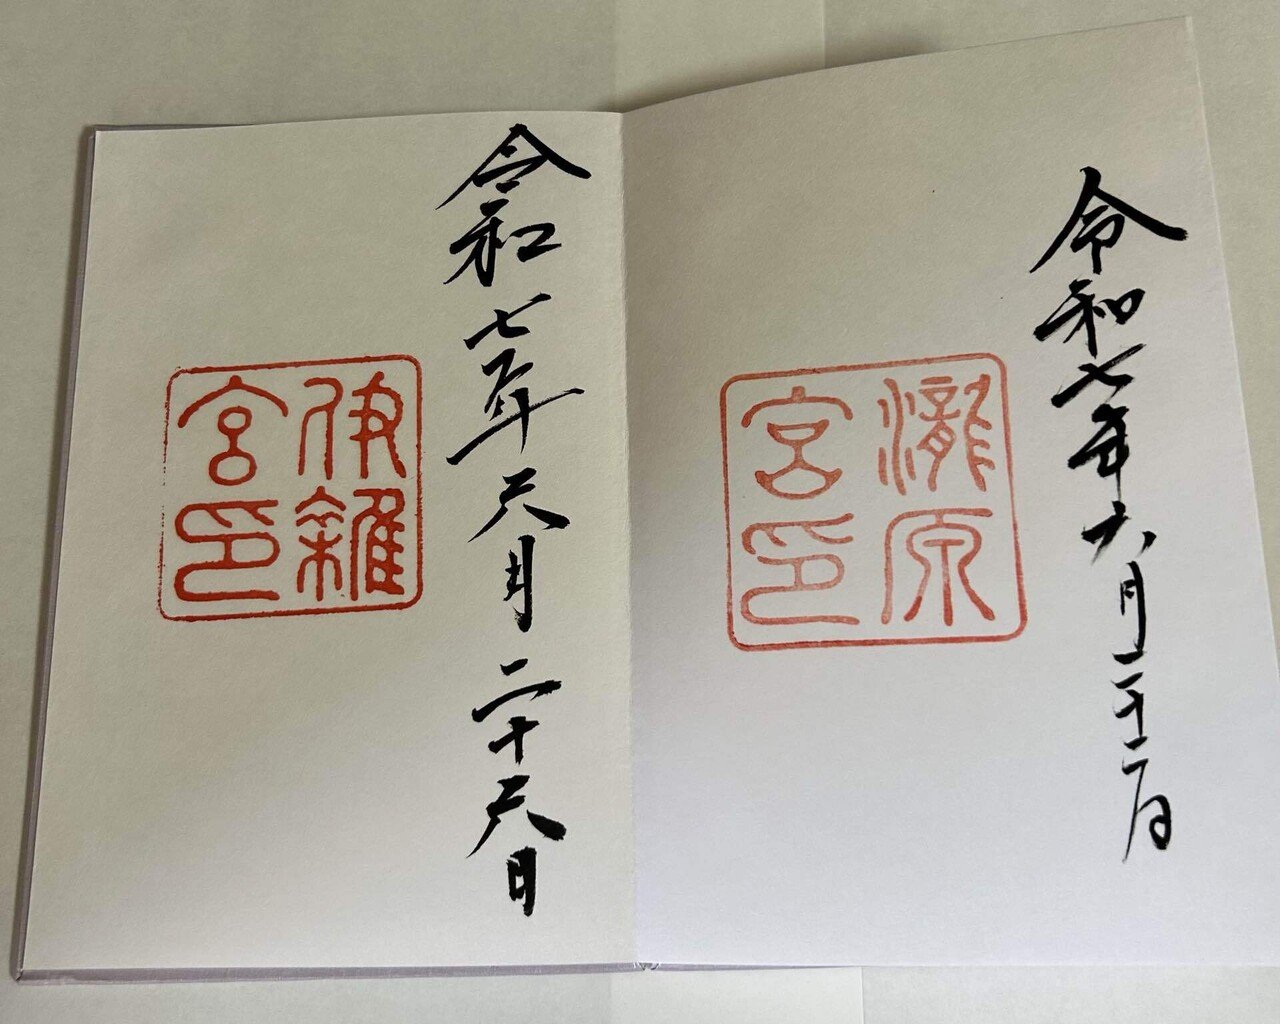 令和七年六月二十二日
瀧原
宮印
令和七年六月二十六日
伊雜
宮印